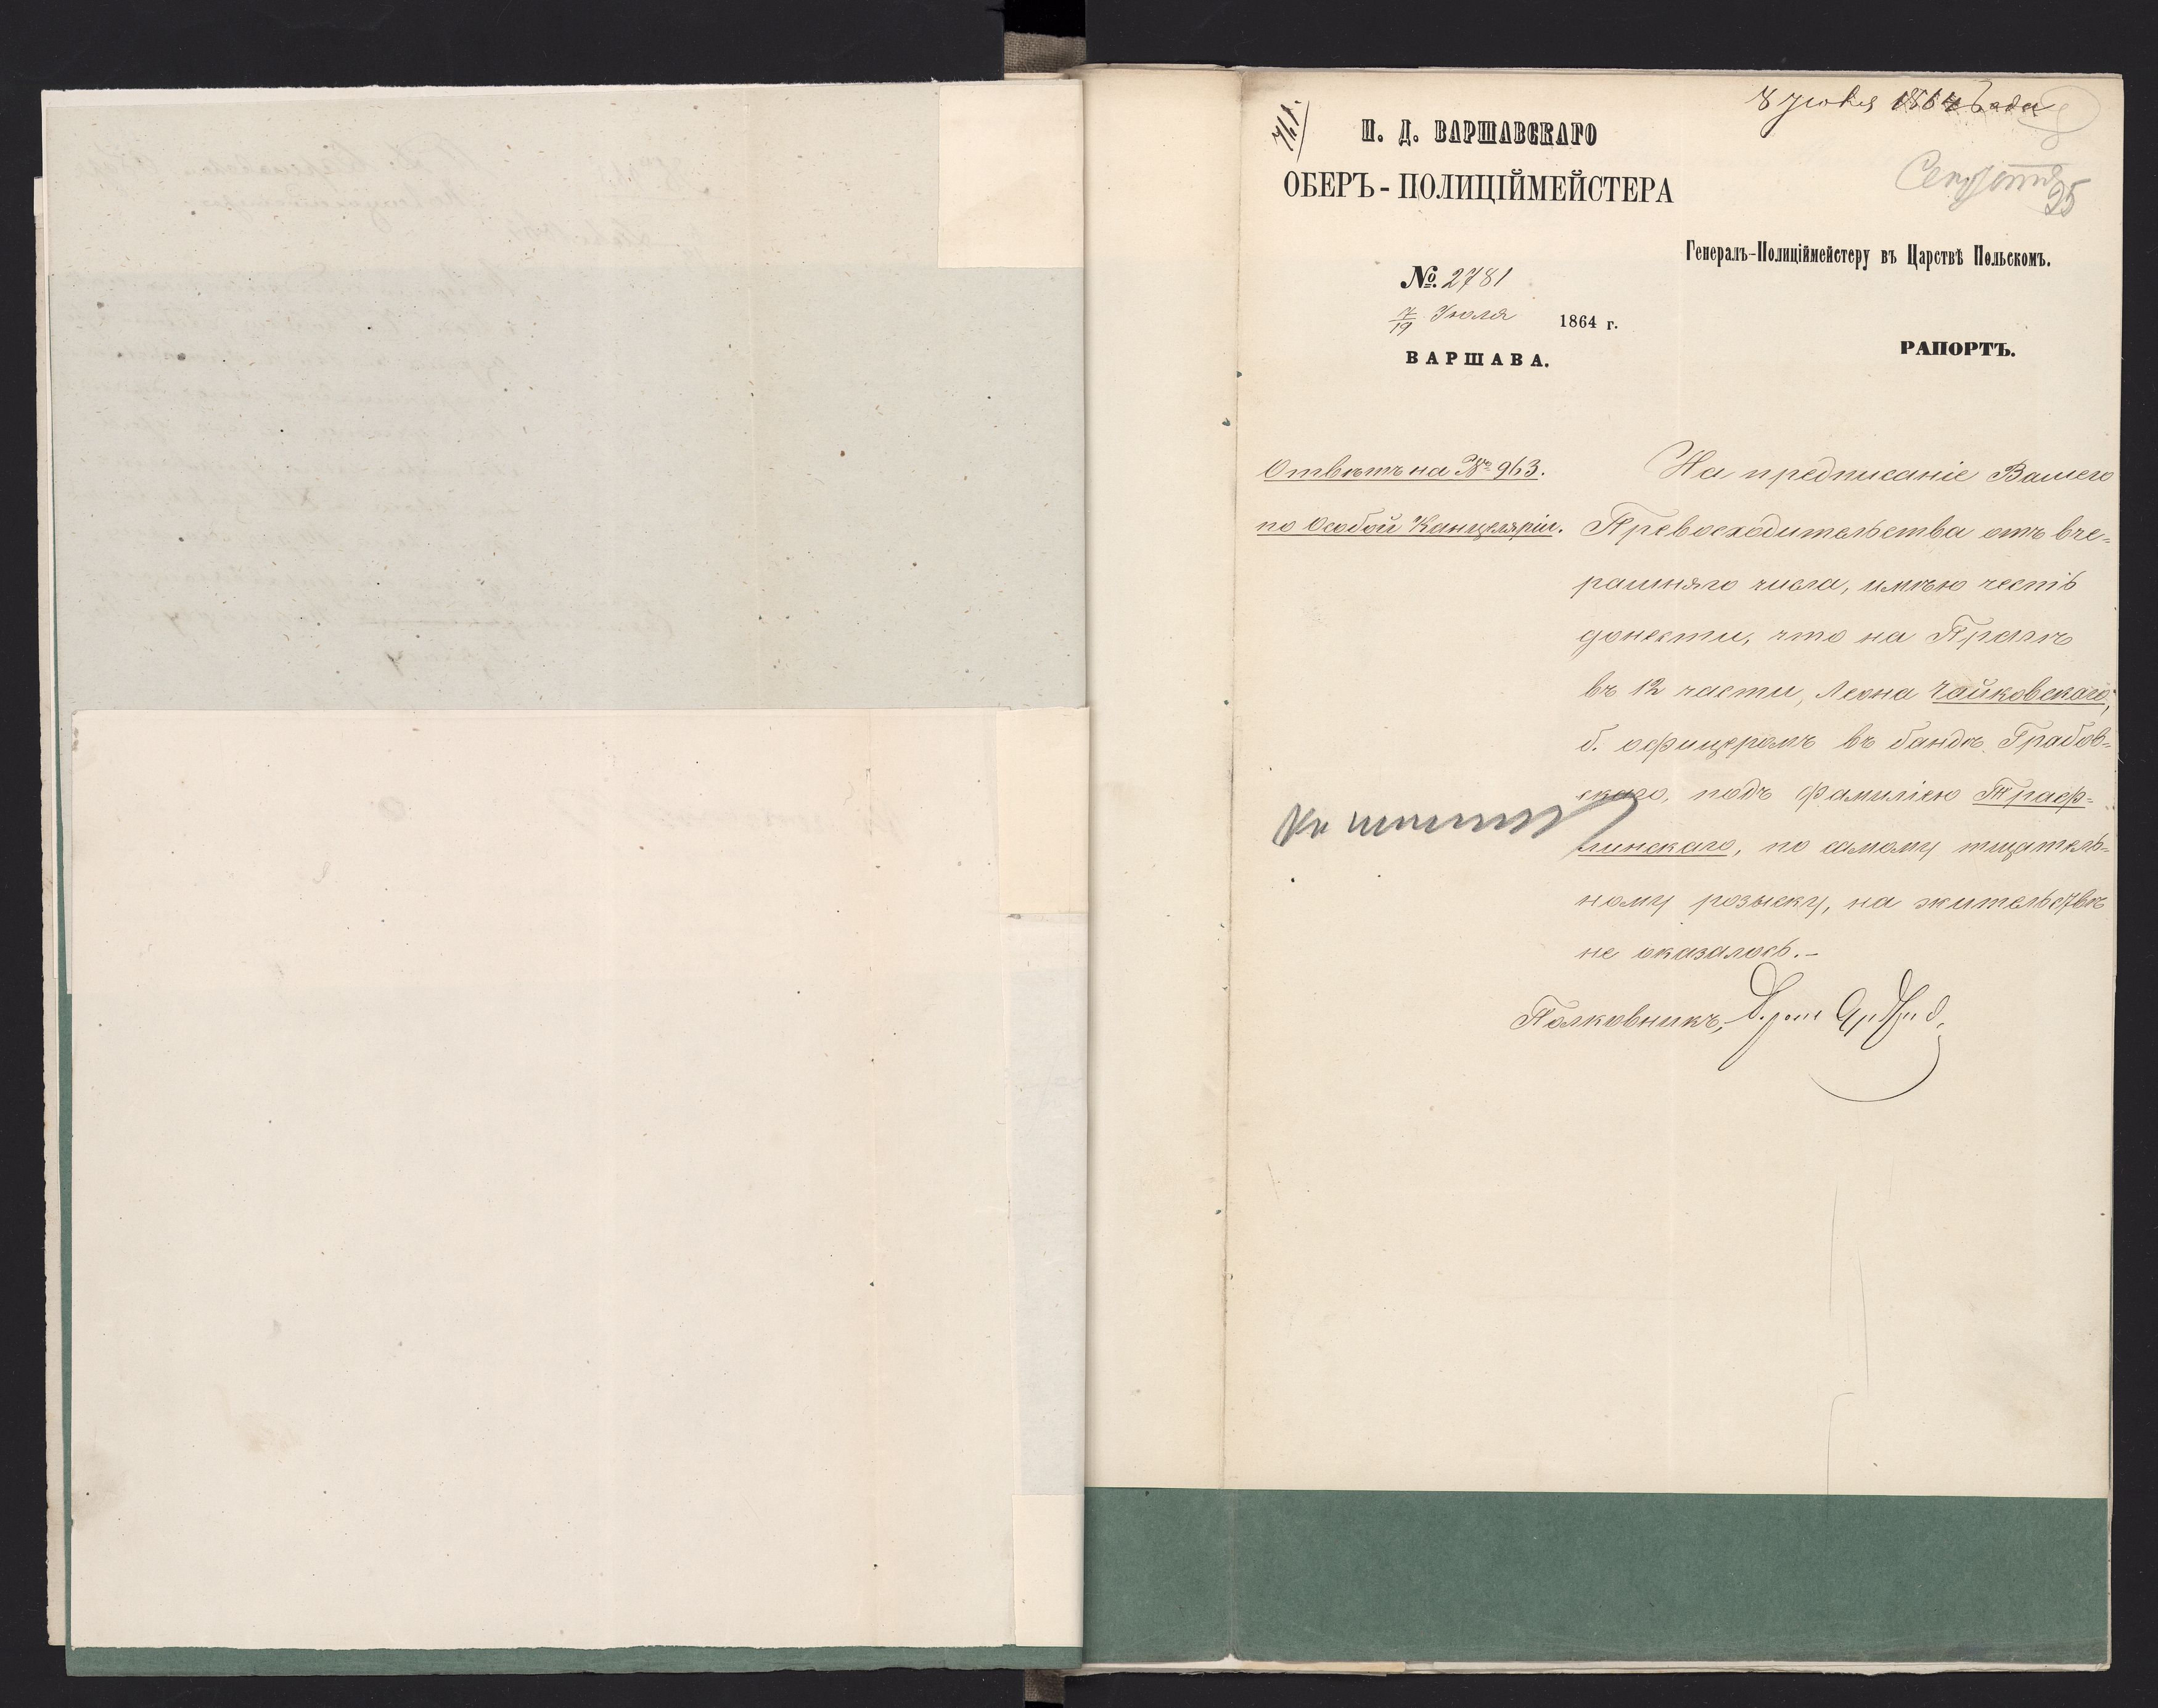 8 Июля 1864 года
И. Д. ВАРШАВСКАГО
ОБЕРЪ-ПОЛИЦІЙМЕЙСТЕРА
95
Генералъ-Полиціймейстеру въ Царствѣ Польскомъ.
№. 2781
7/19 Июля 1864 г.
ВАРШАВА.
РАПОРТЪ.
Отвѣтъ на № 963.
по Особой Канцеляріи.
На предписаніе Вашего
Превосходительства отъ вче-
рашняго числа, имѣю честь
донести, что на Прагѣ
въ 12 части, Леона Чайковскаго,
б. офицеромъ въ бандѣ Грабов-
скаго, подъ фамиліею Траф-
линскаго, по самому тщатель-
ному розыску, на жительствѣ
не оказалось.-
Полковникъ,